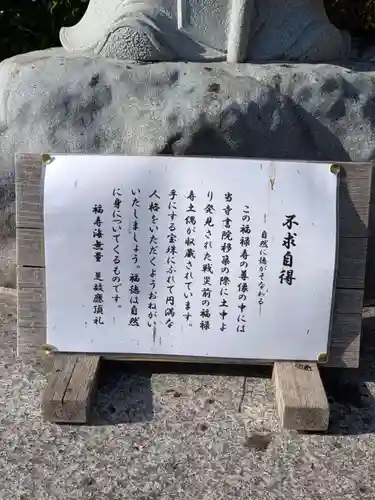 不求自得
―自然に徳がそなわる―
この福禄寿の尊像の中には
当寺書院移築の際に土中よ
り発見された戦災前の福禄
寿土偶が収蔵されています。
手にする宝珠にふれて円満な
人格をいただくようおねがい
いたしましょう。福徳は自然
に身についてくるものです。
福寿海無量 是故應頂礼